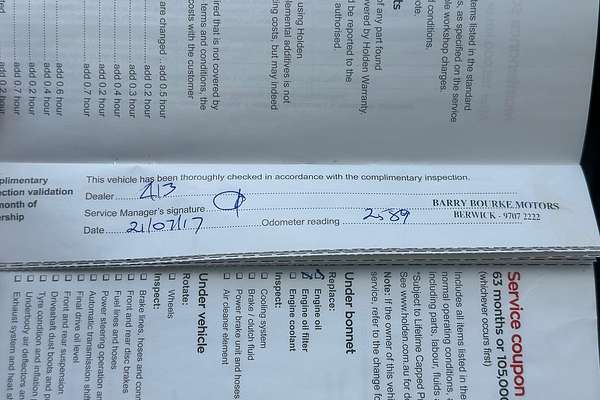 using Holden
plemental additives is not
ing costs but may indeed
ts
of any part found
overed by Holden Warranty.
d be reported to the
authorised.
items listed in the standard
s, as specified on the service
ole workshop charges.
d conditions.
ote.
ired that is not covered by
terms and conditions, the
costs with the customer
are changed .. add 0.5 hour
add 0.2 hour
add 0.3 hour
add 0.4 hour
add 0.2 hour
add 0.7 hour
add 0.6 hour
add 0.4 hour
add 0.7 hour
add 0.2 hour
plimentary
ection validation
month of
ership
This vehicle has been thoroughly checked in accordance with the complimentary inspection.
Dealer 413
BARRY BOURKE MOTORS
Service Manager's signature
BERWICK - 9707 2222
Date 21/07/17 Odometer reading 2589
Service coupon
63 months or 105,000
(whichever occurs first)
Includes all items listed in the
normal operating conditions,
including parts, labour, fluids
*Subject to Lifetime Capped P
See www.holden.com.au for de
Note: If the owner of this vehi
service, refer to the change fo
Under bonnet
Replace:
Engine oil
Engine oil filter
Engine coolant
Inspect:
Cooling system
Brake / clutch fluid
Power brake unit and hoses
Air cleaner element
Under vehicle
Rotate:
Wheels
Inspect:
Brake lines, hoses and conn
Front and rear disc brakes
Fuel lines and hoses
Power steering operation an
Automatic transmission shift
Final drive oil level
Front and rear suspension
Driveshaft dust boots and p
Tyre condition and inflation p
Underbody air deflectors an
Exhaust system and heat sh